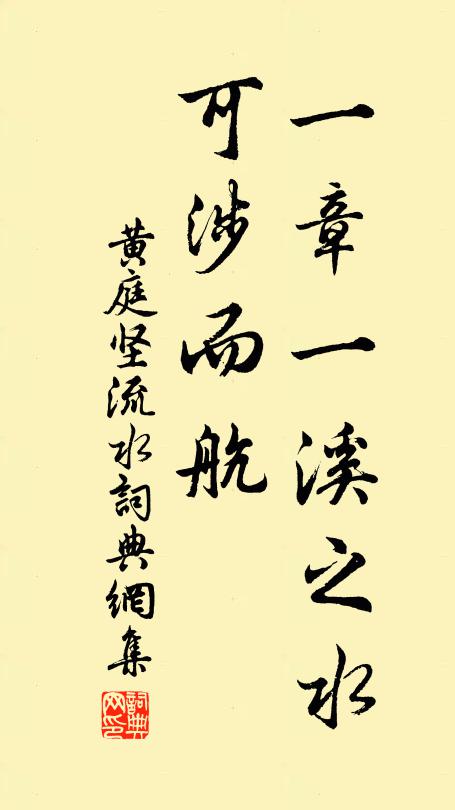 一章一溪之水
可涉而航
黄庭坚流水詞典網集
詞典
网印